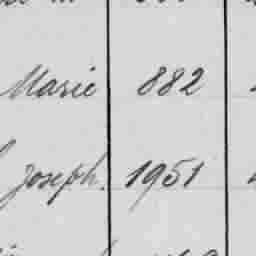 Marie 882
Joseph. 1951